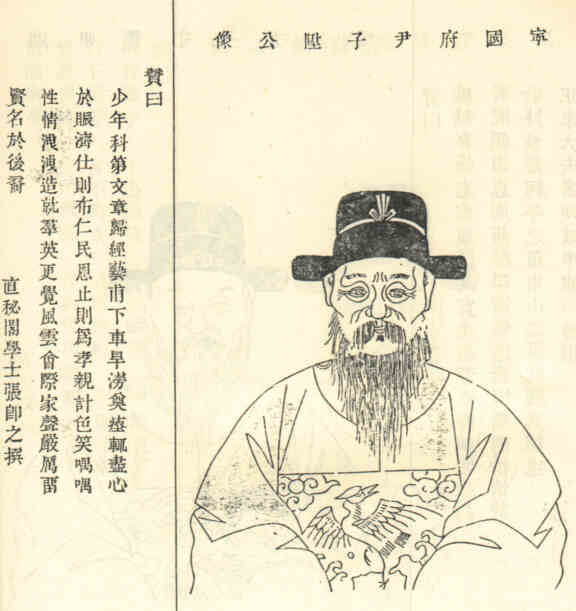 寧國府尹子公像
贊曰
少年科第文章歸經藝甫下車旱澇奠瘞輒盡心
於賑濟仕則布仁民恩止則爲孝親計色笑喁喁
性情洩洩造就羣英更覺風雲會際家聲嚴厲畱
賢名於後裔
直秘閣學士張卽之撰